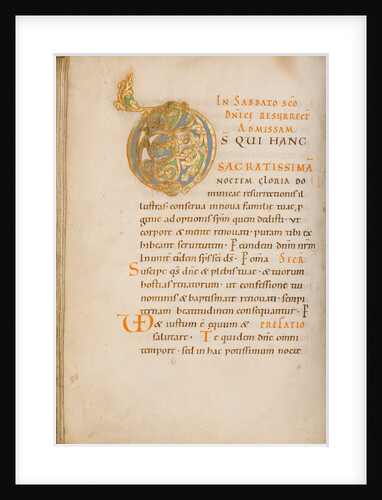 IN SABBATO SC̄O
DN̄ICE RESURRECT̄
AD MISSAM.
D̄S QUI HANC
SACRATISSIMĀ
NOCTEM GLORIA DO
minicae resurrectionis il
lustras· conserva in nova familiae tuae, p
genie adoptionis sp̄m quem dedisti· ut
corpore & mente renovati· puram tibi ex
hibeant servitutem· P eundem dn̄m nr̄m
In unit̄ eiusdem sp̄s sc̄i ds̄· P om̄a SECR̄
Suscipe qs̄ dn̄e & plebis tuae· & tuorum
hostias renatorum· ut confessione tui
nominis & baptismate renovati· sempi
ternam beatitudinem consequantur· P
VD & iustum ē equum & PREFATIO
salutare· Te quidem dn̄e omni
tempore· sed in hac potissimum nocte